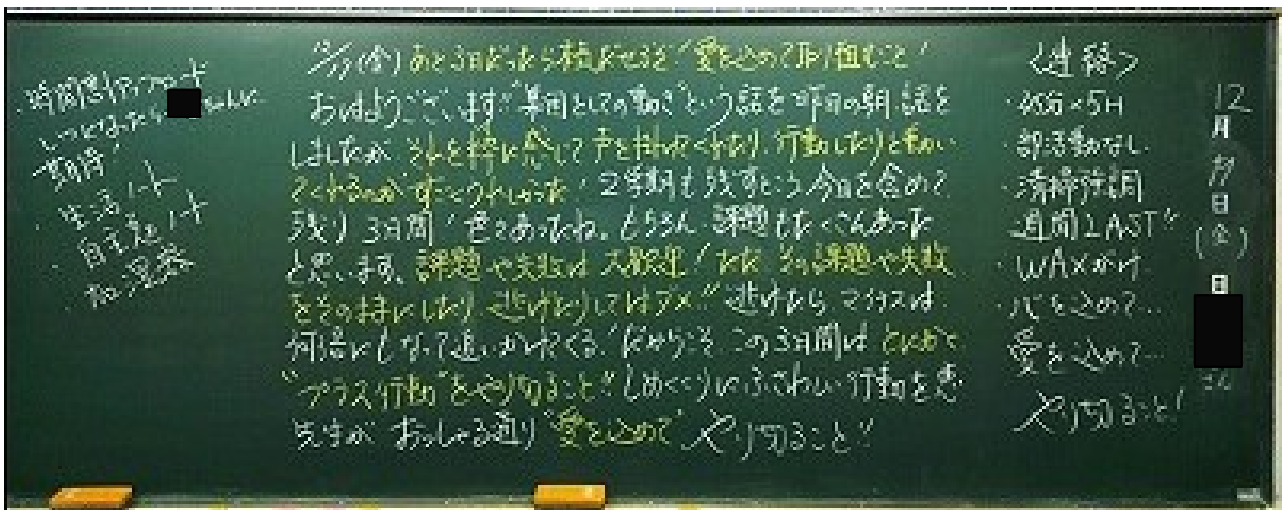 (金)あと3日だったら 愛を込めて取り組むこと!
おはようございます!"集団としての動き"という話を昨日の朝、話を
しましたが、それを粋に感じて声を掛けてくれたり、行動したりと動い
てくれるのがすごくうれしかった!2学期も残すところ今日を含めて
残り3日間!色々あったね。もちろん、課題もたくさんあった
と思います。課題や失敗は大歓迎!ただ、その課題や失敗
をそのままにしたり、逃げたりしてはダメ!!逃げたら、マイナスは
何倍にもなって追いかけてくる!だからこそ、この3日間は とにかく
"プラス行動"をやり切ること!!しめくくりにふさわしい行動を
先生が おっしゃる通り"愛を込めて"やり切ること!!
<連絡>
・×5H
・部活動なし
・清掃強調
週間LAST!!
・WAXがけ
・心を込めて…
愛を込めて…
やり切ること!
12
月
日
(金)
日
期待!
・生活ノート
・自主勉ノート